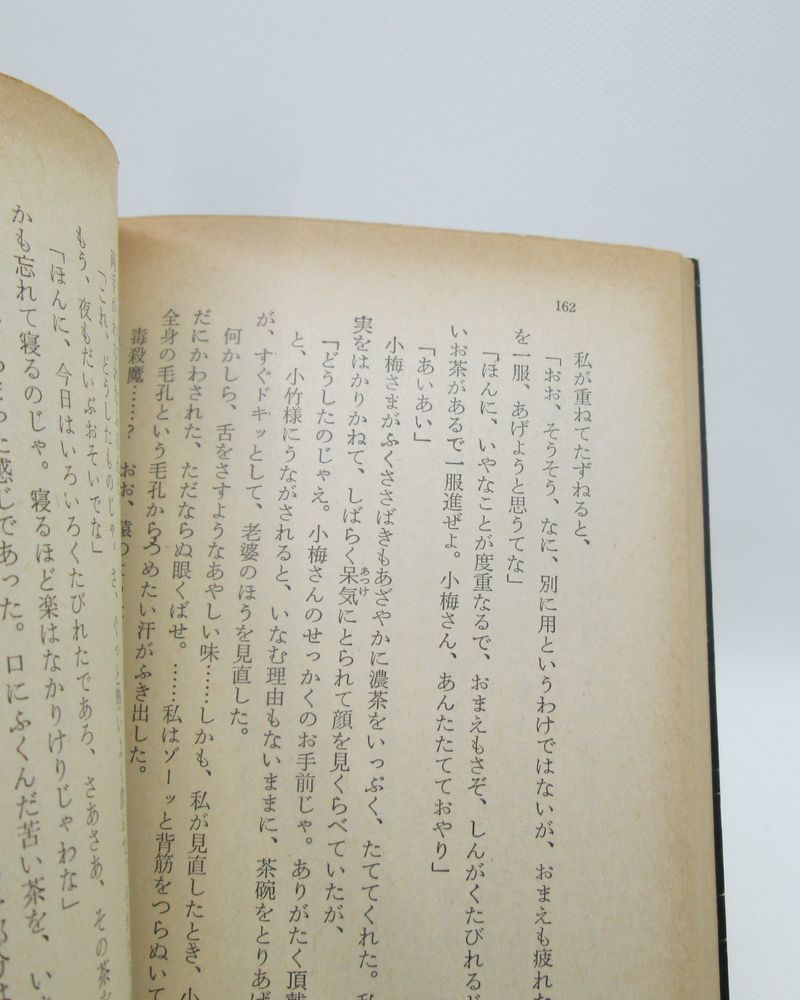 162
私が重ねてたずねると、
「おお、そうそう、なに、別に用というわけではないが、おまえも疲れた
を一服、あげようと思うてな」
「ほんに、いやなことが度重なるで、おまえもさぞ、しんがくたびれる
いお茶があるで一服進ぜよ。小梅さん、あんたたてておやり」
「あいあい」
小梅さまがふくささばきもあざやかに濃茶をいっぷく、たててくれた。
実をはかりかねて、しばらく呆気にとられて顔を見くらべていたが、
あっけ
「どうしたのじゃえ。小梅さんのせっかくのお手前じゃ。ありがたく頂
と、小竹様にうながされると、いなむ理由もないままに、茶碗をとりあげ
が、すぐドキッとして、老婆のほうを見直した。
何かしら、舌をさすようなあやしい味……しかも、私が見直したとき、小
だにかわされた、ただならぬ眼くばせ。……私はゾーッと背筋をつらぬいて
全身の毛孔という毛孔からつめたい汗がふき出した。
毒殺魔……？ おお、
「これ、どうしたものじゃ。さ
もう、夜もだいぶおそいでな」
「ほんに、今日はいろいろくたびれたであろ、さあさあ、その茶
かも忘れて寝るのじゃ。寝るほど楽はなかりけりじゃわな」
感じであった。口にふくんだ苦い茶を、い